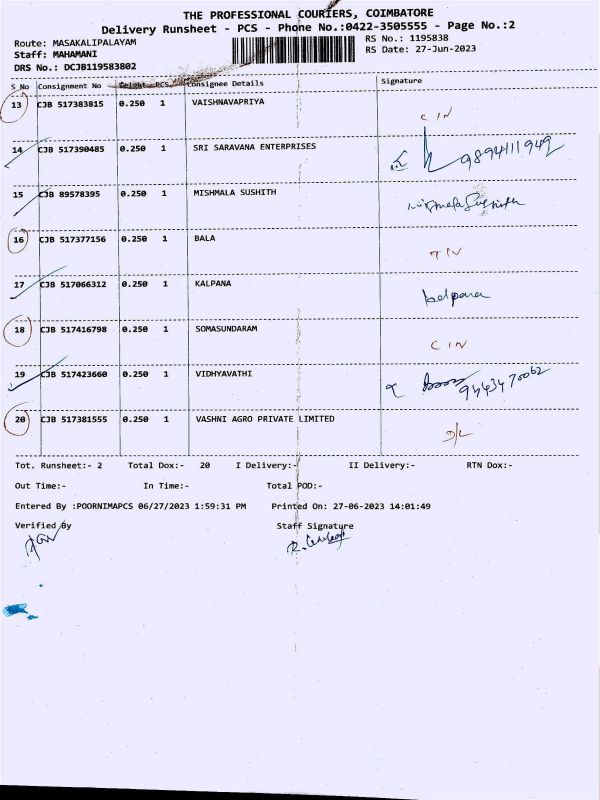 THE PROFESSIONAL COURIERS, COIMBATORE
Delivery Runsheet - PCS - Phone No.:0422-3505555 - Page No.:2
Route: MASAKALIPALAYAM RS No.: 1195838
Staff: MAHAMANI RS Date: 27-Jun-2023
DRS No.: DCJB119583802
S No Consignment No Weight PCS Consignee Details Signature
13 CJB 517383815 0.250 1 VAISHNAVAPRIYA CIN
14 CJB 517390485 0.250 1 SRI SARAVANA ENTERPRISES 9894411949
15 CJB 89578395 0.250 1 MISHMALA SUSHITH
16 CJB 517377156 0.250 1 BALA
17 CJB 517066312 0.250 1 KALPANA kalpana
18 CJB 517416798 0.250 1 SOMASUNDARAM CIN
19 CJB 517423660 0.250 1 VIDHYAVATHI 9443470062
20 CJB 517381555 0.250 1 VASHNI AGRO PRIVATE LIMITED D/L
Tot. Runsheet:- 2 Total Dox:- 20 I Delivery:- II Delivery:- RTN Dox:-
Out Time:- In Time:- Total POD:-
Entered By :POORNIMAPCS 06/27/2023 1:59:31 PM Printed On: 27-06-2023 14:01:49
Verified By Staff Signature